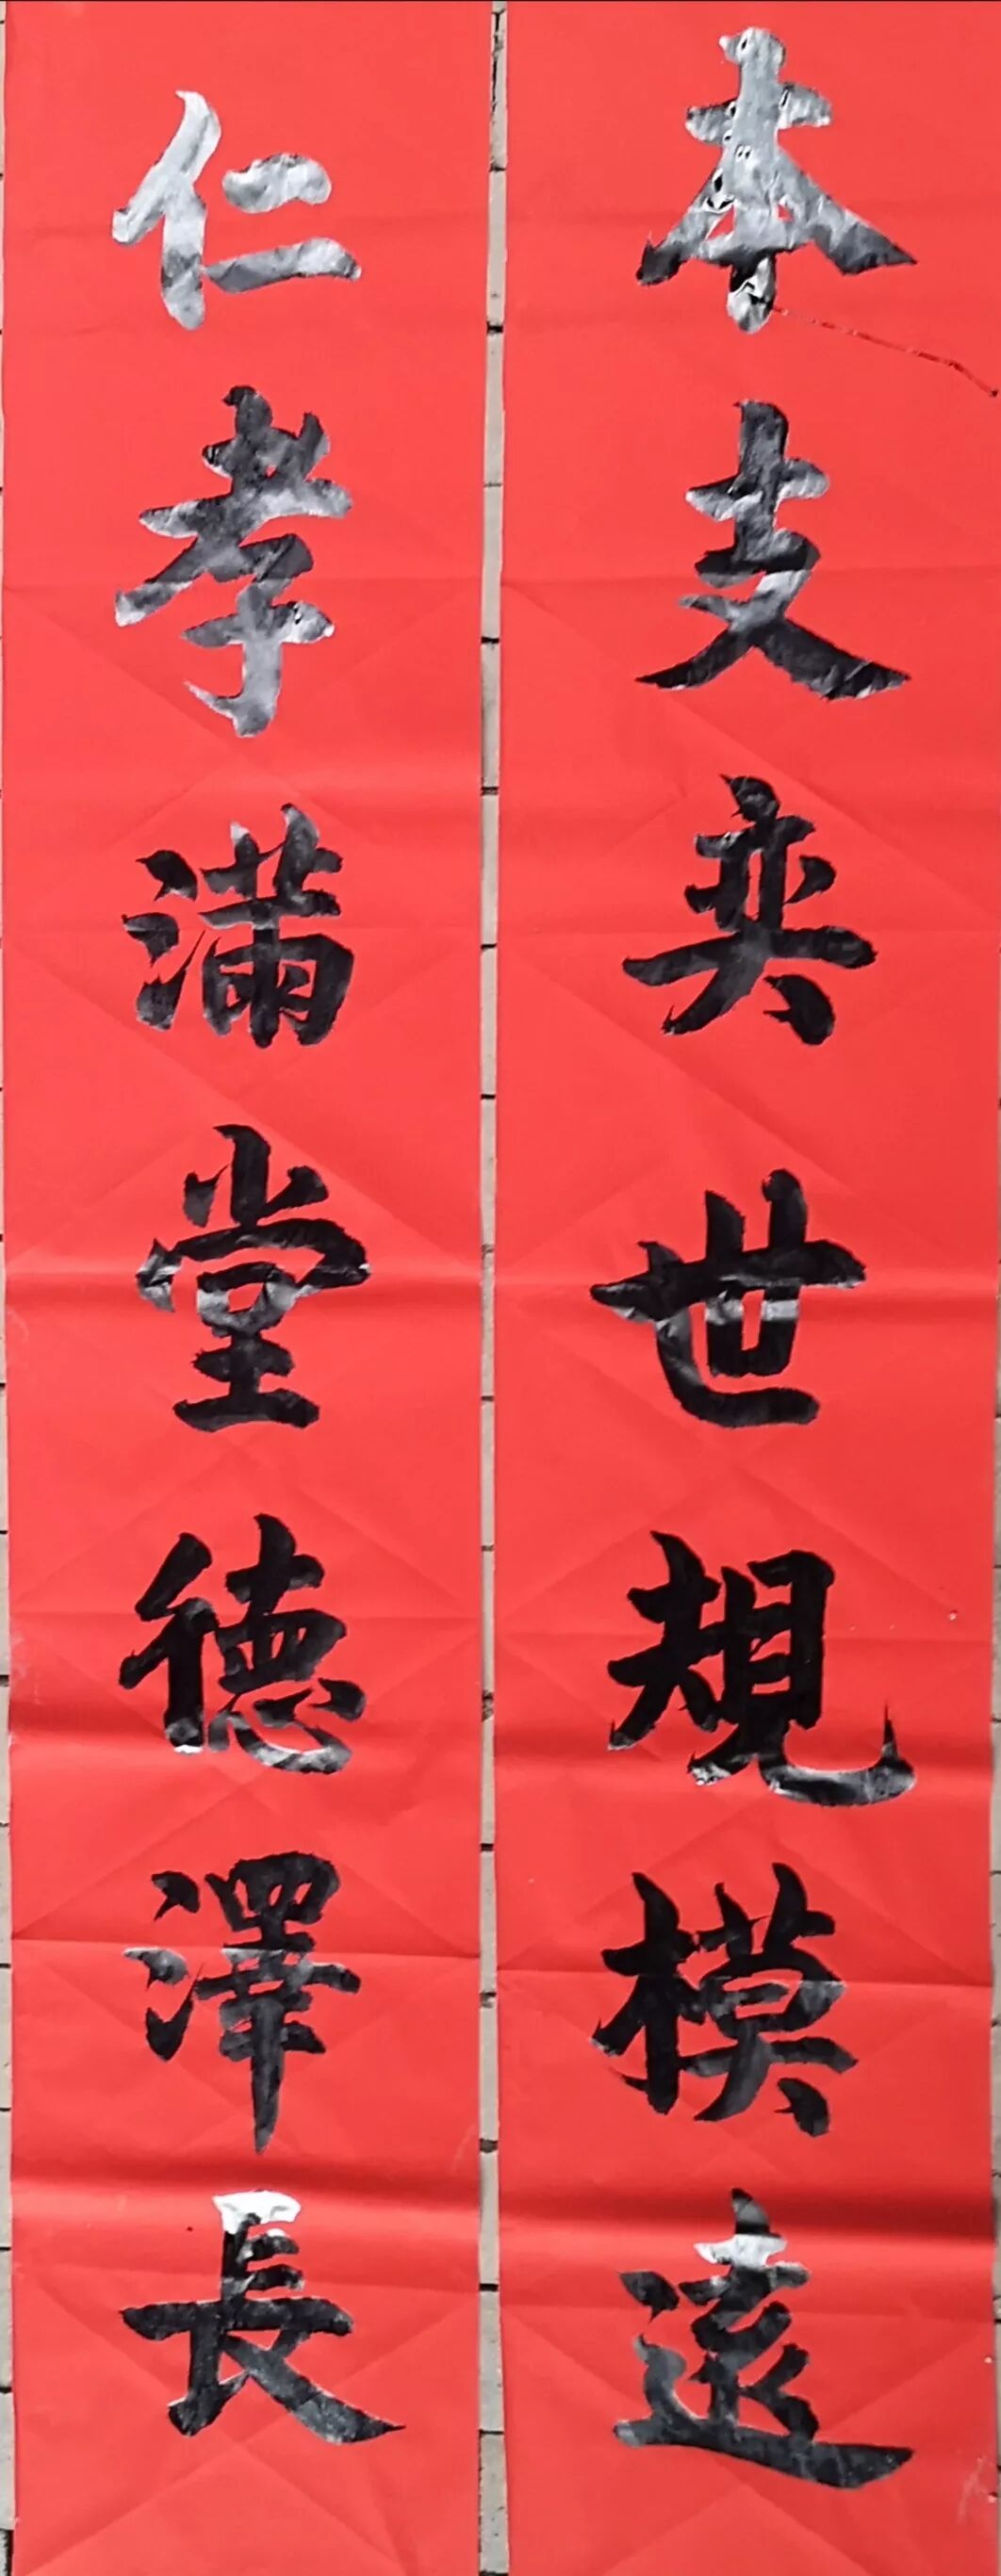 本支奕世規模遠
仁孝滿堂德澤長